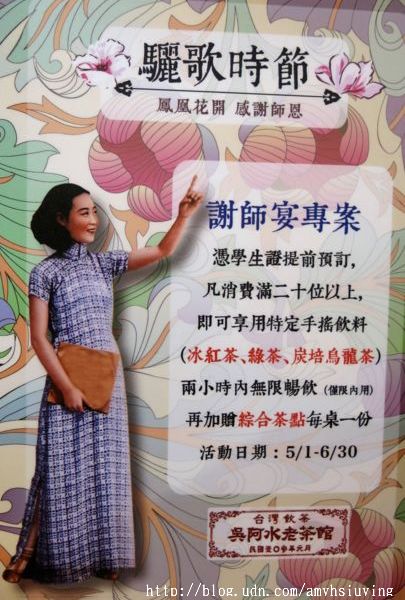 驪歌時節
鳳凰花開 感謝師恩
謝師宴專案
憑學生證提前預訂,
凡消費滿二十位以上,
即可享用特定手搖飲料
(冰紅茶、綠茶、炭培烏龍茶)
兩小時內無限暢飲 (僅限內用)
再加贈綜合茶點每桌一份
活動日期：5/1-6/30
台灣飲茶
吳阿水老茶館
http://blog.udn.com/amyhsiuying